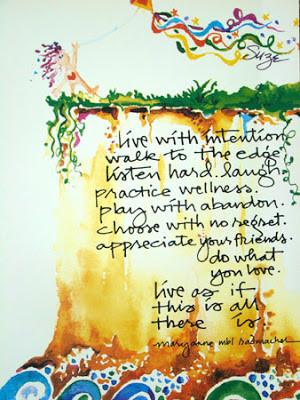 Suze
live with intention
walk to the edge
listen hard. laugh
practice wellness.
play with abandon.
choose with no regret.
appreciate your friends.
do what
you love.
live as if
this is all
there is